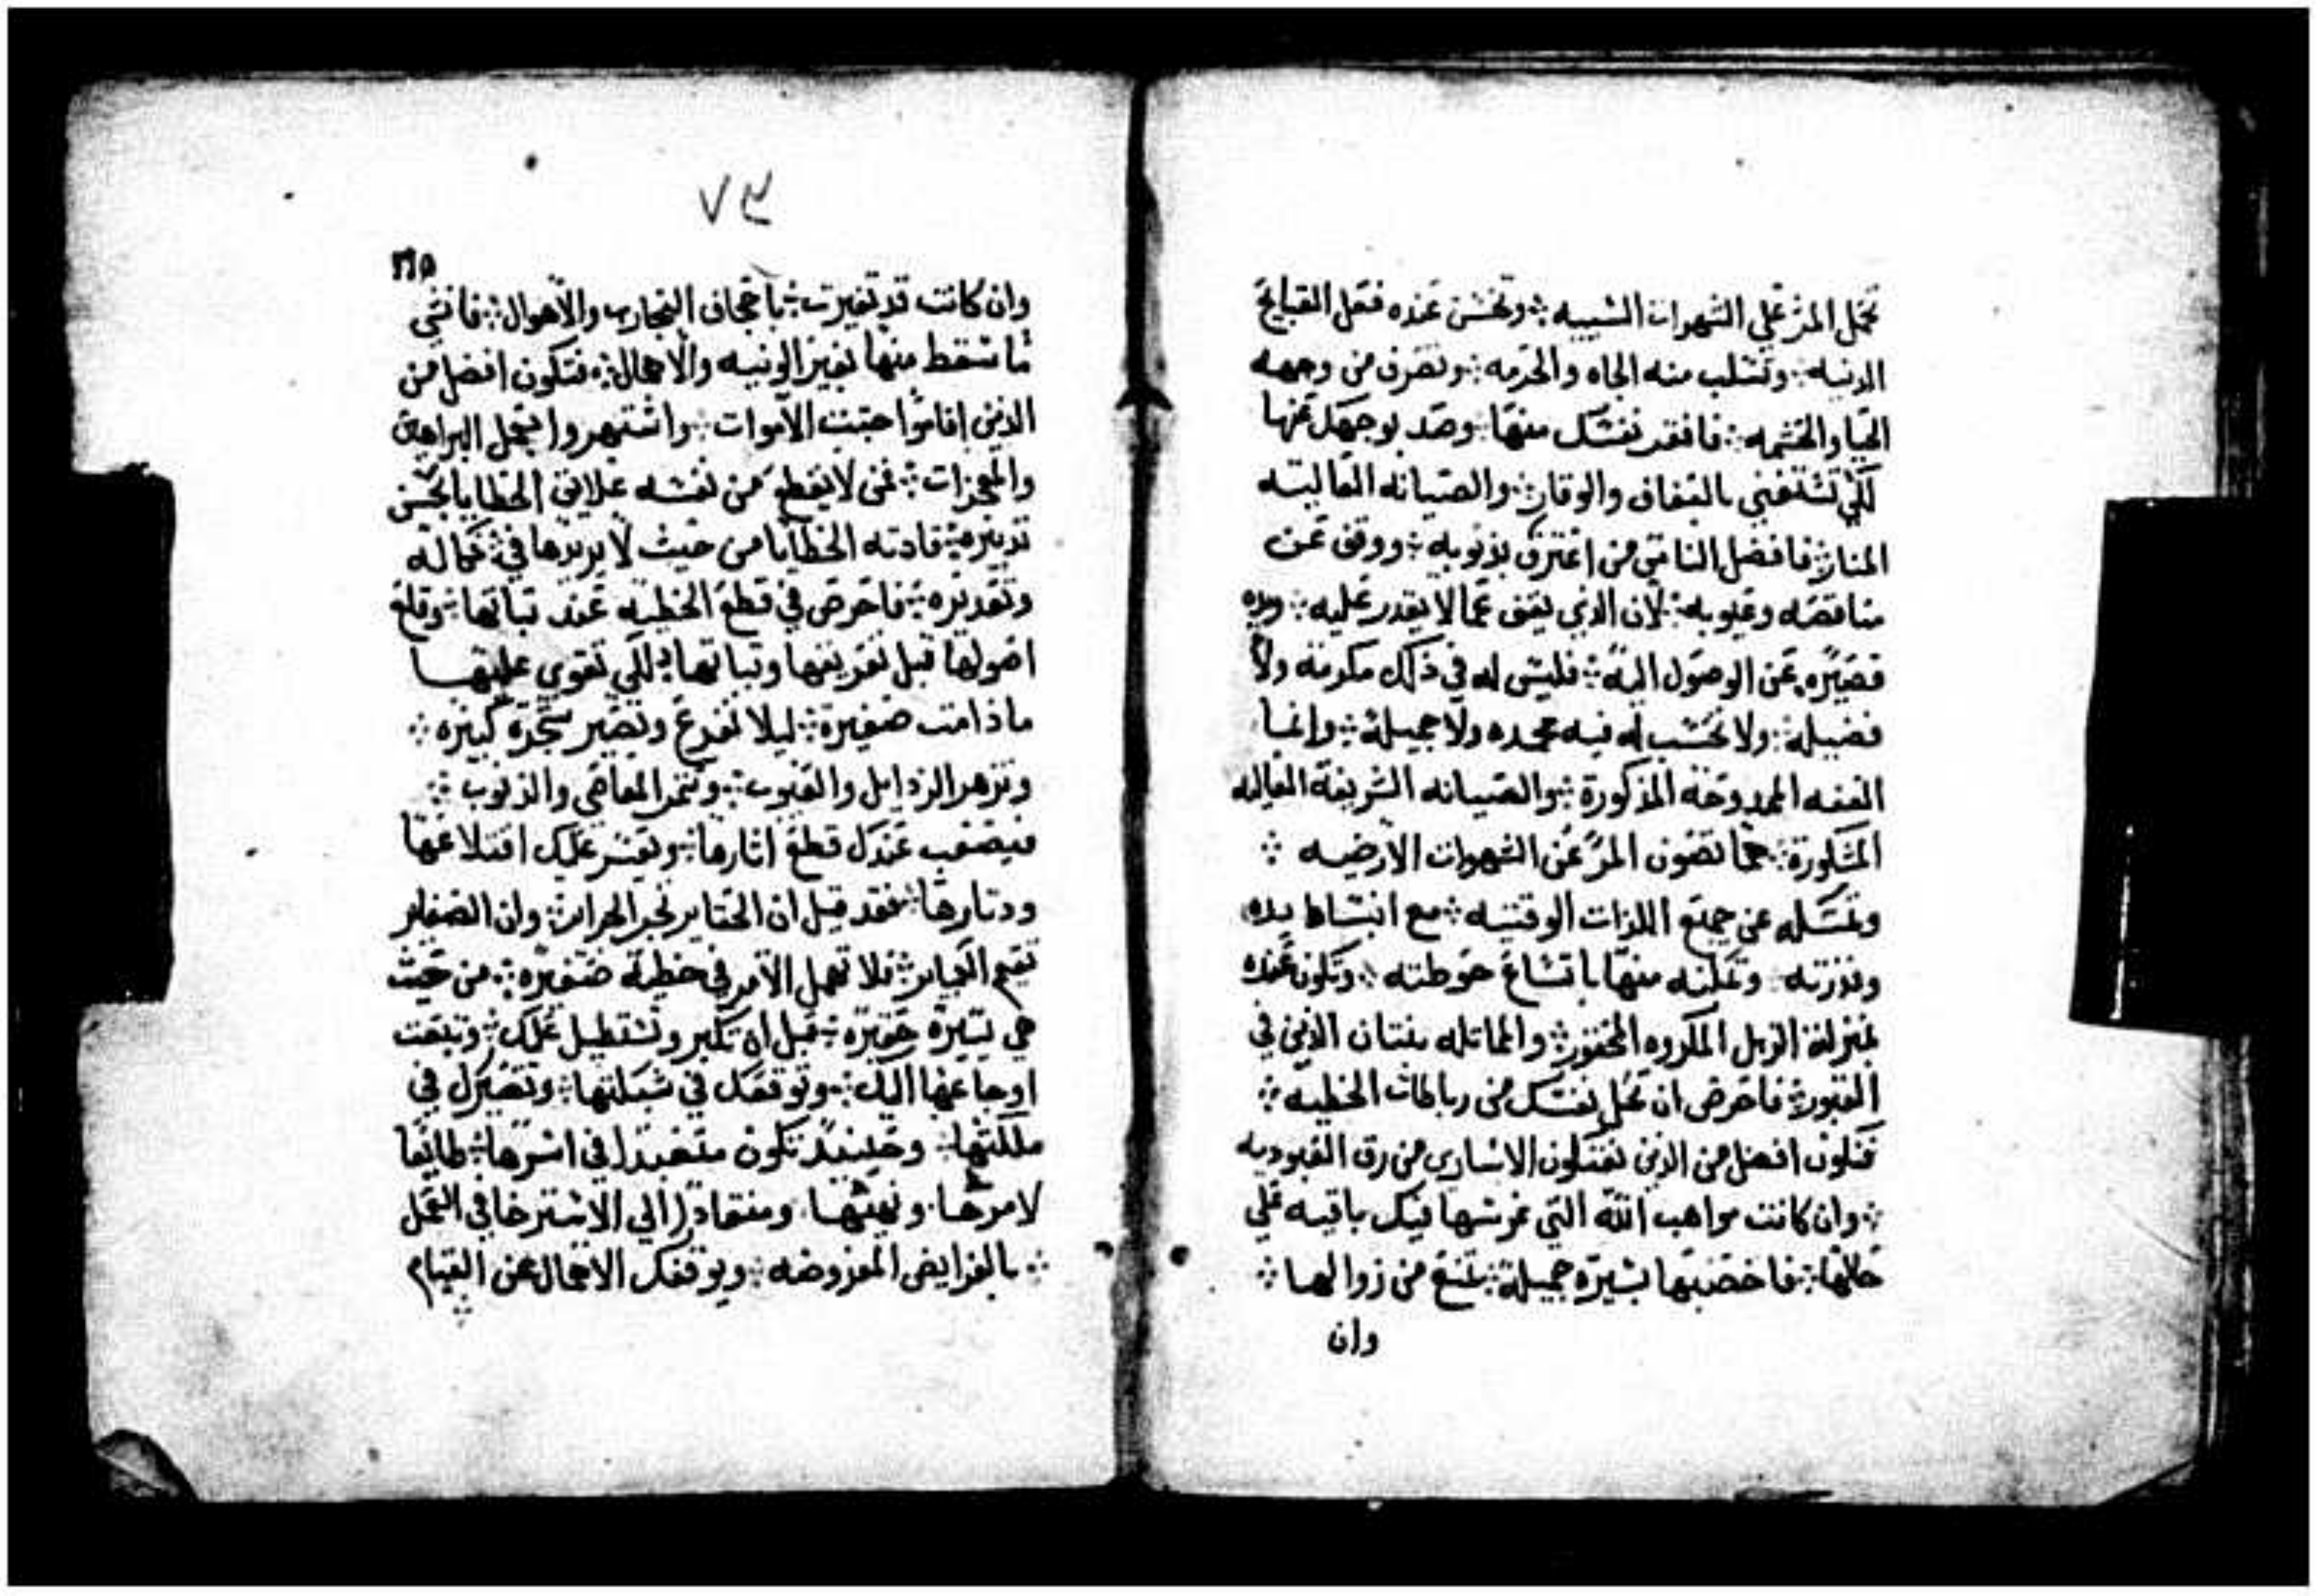 تحمل المرء علي الشهوات السبيه ⁘ وتحسن عنده فعل القبايح
الدنيه ⁘ وتسلب منه الجاه والحرمه ⁘ وتصرف من وجهه
الحيا والحشمه ⁘ فافقد نفسك منها ⁘ وصد بوجهك عنها
لكي تستغني بالعفاف والوقار ⁘ والصيانه العاليته
المنار ⁘ فافضل الناس من اعترف بذنوبه ⁘ ووقف عن
مناقصه وعيوبه ⁘ لان الذي يقف عما لا يقدر عليه ⁘ ويده
قصيره عن الوصول اليه ⁘ فليس له في ذلك مكرمه ولا
فضيله ⁘ ولا تحسب له فيه محمده ولا جميلة ⁘ وانما
العفه الممدوحه المذكورة ⁘ والصيانه الشريفة العاليه
المشكورة ⁘ مما تصون المرء عن الشهوات الارضيه ⁘
وتمسكه عن جميع اللذات الوقتيه ⁘ مع انبساط يده
وقدرته ⁘ وتمكنه منها باتساع حوطته ⁘ وتكون عنده
بمنزلة الزبل المكروه المحقور ⁘ والمماتله بنتان الذين في
القبور ⁘ فاحرص ان تحل نفسك من رباطات الخطيه ⁘
فتكون افضل من الذين يفتكون الاساري من رق العبوديه
⁘ وان كانت مواهب الله التي غرسها فيك باقيه علي
حالها ⁘ فاخصبها بسيرة جميلة ⁘ تمنع من زوالها ⁘
وان
٧٣
٢٦٥
وان كانت قد تغيرت ⁘ باعجاف التجارب والاهوال ⁘ فانشي
ما سقط منها بغير الونيه والاهمال ⁘ فتكون افضل من
الذين اقاموا حتت الاموات ⁘ واشتهروا بعمل البراهين
والمعجزات ⁘ فمن لا يقطع من نفسه علايق الخطايا بحسن
تدبيره ⁘ قادته الخطايا من حيث لا يريدها في كماله
وتقديره ⁘ فاحرص في قطع الخطيه عند نباتها ⁘ وقلع
اصولها قبل تفريعها وتباتها ⁘ لكي تقوي عليها
ما دامت صغيرة ⁘ ليلا تفرع وتصير شجرة كبيره ⁘
وتزهر الرذايل والعيوب ⁘ وتثمر المعاصي والذنوب ⁘
فيصعب عندك قطع اثارها ⁘ ويعسر عليك اقتلاعها
ودثارها ⁘ فقد قيل ان الحتاير تجر الجراير ⁘ وان الصغاير
تقيم الكباير ⁘ فلا تهمل الامر في خطية صغيره ⁘ من حيث
هي يسيرة حقيره ⁘ قبل ان تكبر وتستطيل عليك ⁘ وتبعت
اوجاعها اليك ⁘ وتوقعك في شبكتها ⁘ وتصيرك في
مملكتها ⁘ وحينيد تكون متعبدا في اسرها ⁘ طايعا
لامرها ⁘ ونهيها ⁘ ومنقادا الي الاسترخا في العمل
⁘ بالفرايض المفروضه ⁘ ويوقفك الاهمال عن القيام